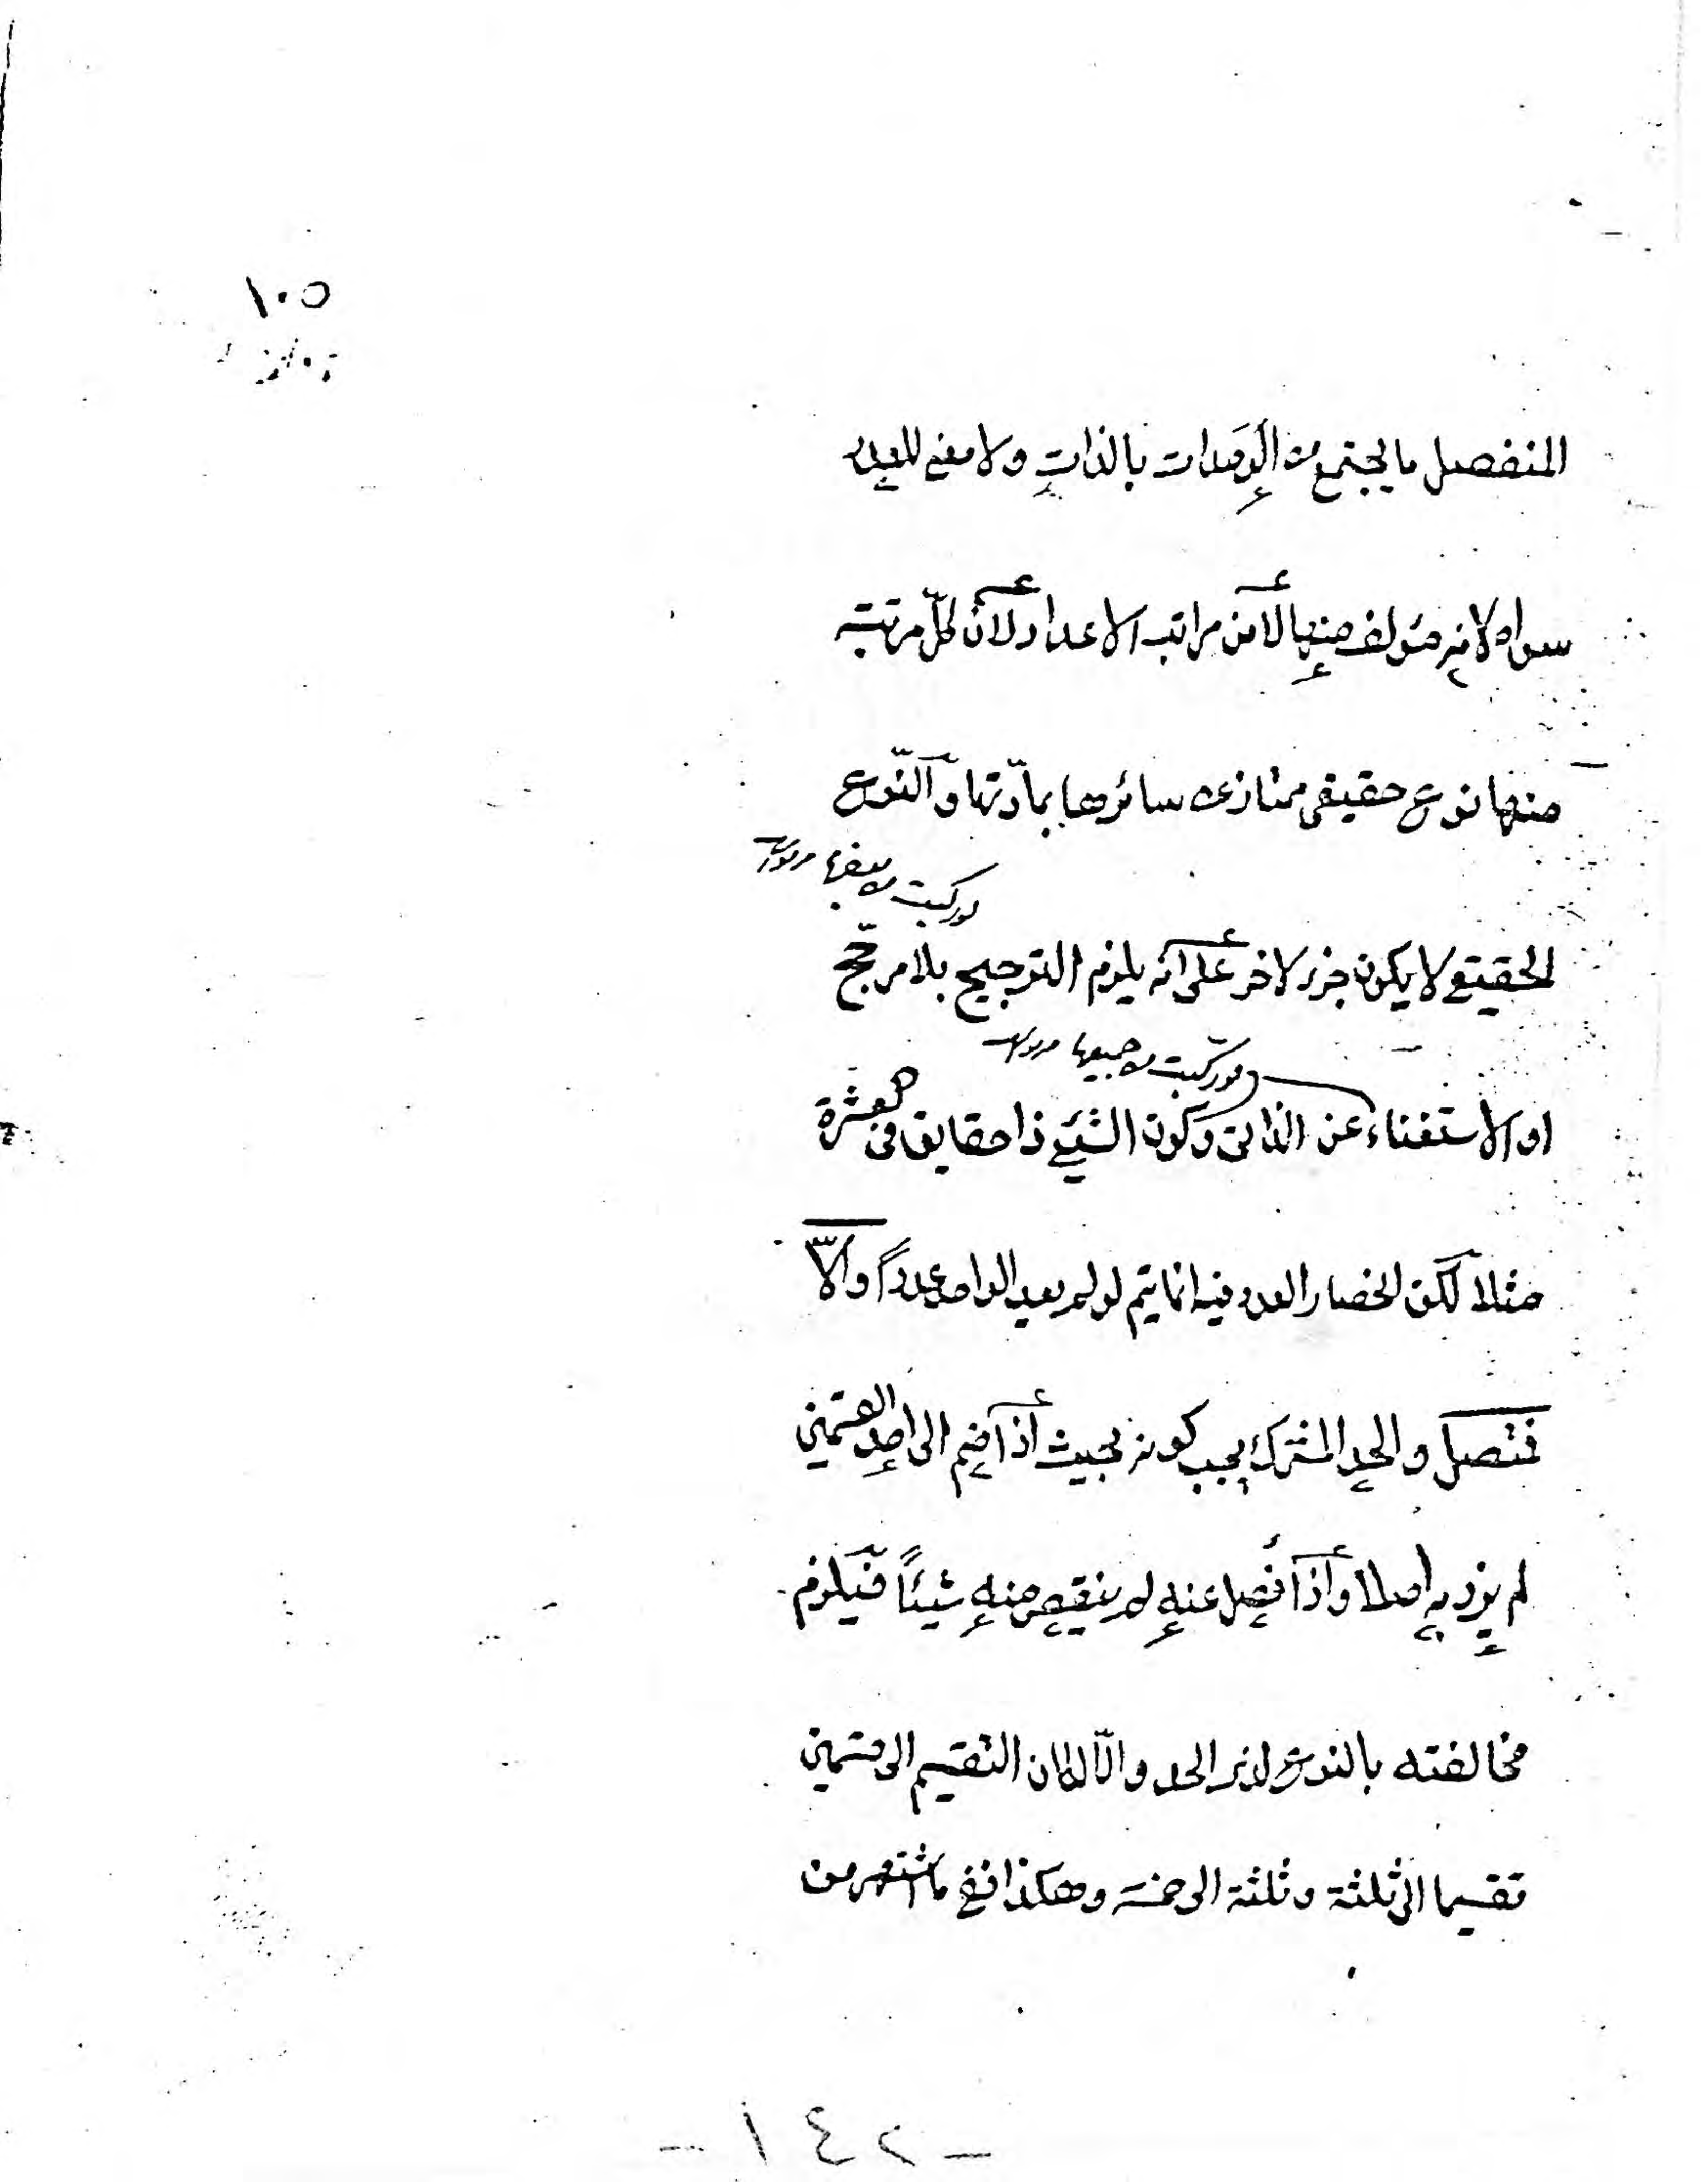 ١٠٥
المنفصل ما يجتمع من الوحدات بالذات ولا معنى للعدد
سواه لانه مؤلف منها لا من مراتب الاعداد لانّ لكلّ مرتبته
منها نوع حقيقى ممتاز عن سائرها بمادّتها والنّوع
لو ركبت من بعضها
الحقيقى لا يكون جزء لاخر على انه يلزم الترجيح بلا مرجّح
لو تركبت من جميعها
او الاستغناء عن الذاتى وكون الشيئ ذا حقايق فى العشرة
مثلا لكن انحصار العدد فيه انما يتم لو لم يعد الواحد عدداً والّا
فمتصل والحد المشترك يجب كونه بحيث اذا ضم الى احد القسمين
لم يزد به اصلا واذا فصل عنه لم ينقص منه شيئاً فيلزم
مخالفته بالنوع لذى الحد والّا لكان التقسيم الى قسمين
تقسيما الى ثلثة وثلثة الى خمسة وهكذا ففى ما اشتهر من
- ١٤٢ -